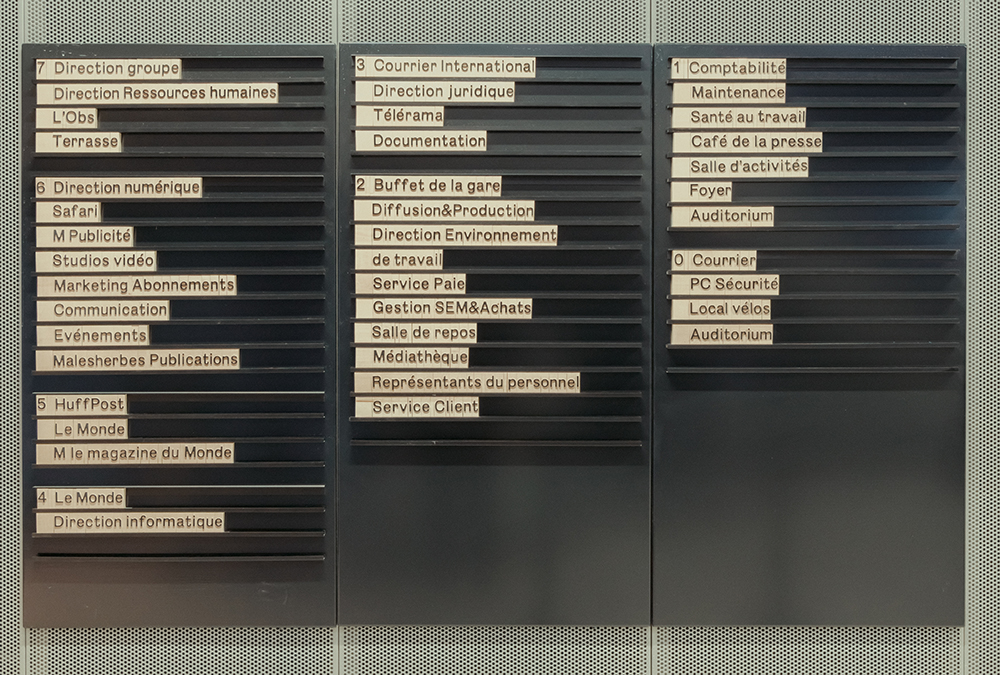 7 Direction groupe
Direction Ressources humaines
L'Obs
Terrasse
6 Direction numérique
Safari
M Publicité
Studios vidéo
Marketing Abonnements
Communication
Evénements
Malesherbes Publications
5 HuffPost
Le Monde
M le magazine du Monde
4 Le Monde
Direction informatique
3 Courrier International
Direction juridique
Télérama
Documentation
2 Buffet de la gare
Diffusion&Production
Direction Environnement
de travail
Service Paie
Gestion SEM&Achats
Salle de repos
Médiathèque
Représentants du personnel
Service Client
1 Comptabilité
Maintenance
Santé au travail
Café de la presse
Salle d'activités
Foyer
Auditorium
0 Courrier
PC Sécurité
Local vélos
Auditorium